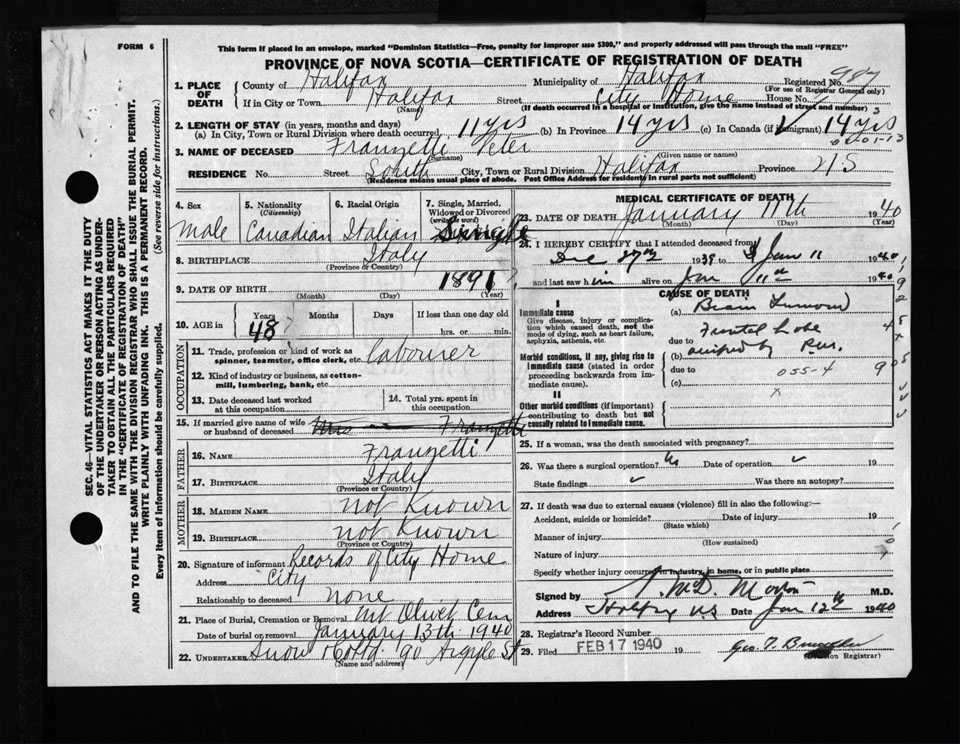 FORM 6
This form if placed in an envelope, marked "Dominion Statistics—Free, penalty for improper use $300," and properly addressed will pass through the mail "FREE"
PROVINCE OF NOVA SCOTIA—CERTIFICATE OF REGISTRATION OF DEATH
1. PLACE OF DEATH
County of Halifax Municipality of Halifax Registered No. 987
(For use of Registrar General only)
If in City or Town Halifax Street City Home House No.
(Name) (If death occurred in a hospital or institution, give the name instead of street and number)
2. LENGTH OF STAY (in years, months and days)
(a) In City, Town or Rural Division where death occurred 11 yrs (b) In Province 14 yrs (c) In Canada (if immigrant) 14 yrs
3. NAME OF DECEASED Franzetti Peter
(Surname) (Given name or names)
RESIDENCE No. Street South City, Town or Rural Division Halifax Province NS
(Residence means usual place of abode. Post Office Address for residents in rural parts not sufficient)
4. Sex Male
5. Nationality (Citizenship) Canadian
6. Racial Origin Italian
7. Single, Married, Widowed or Divorced (write the word) Single
8. BIRTHPLACE Italy
(Province or Country)
9. DATE OF BIRTH 1891 ?
(Month) (Day) (Year)
10. AGE in Years Months Days If less than one day old
48 ? hrs. or min.
OCCUPATION
11. Trade, profession or kind of work as spinner, teamster, office clerk, etc. Labourer
12. Kind of industry or business, as cotton-mill, lumbering, bank, etc.
13. Date deceased last worked at this occupation
14. Total yrs. spent in this occupation
15. If married give name of wife or husband of deceased Mrs Franzetti
FATHER
16. NAME Franzetti
17. BIRTHPLACE Italy
(Province or Country)
MOTHER
18. MAIDEN NAME not Known
19. BIRTHPLACE not Known
(Province or Country)
20. Signature of informant Records of City Home
Address City
Relationship to deceased none
21. Place of Burial, Cremation or Removal Mt Olivet Cem
Date of burial or removal January 13th 1940
22. UNDERTAKER Snow & Co Ltd. 90 Argyle St
(Name and address)
MEDICAL CERTIFICATE OF DEATH
23. DATE OF DEATH January 11th 1940
(Month) (Day)
24. I HEREBY CERTIFY that I attended deceased from
Dec 27th 1939 to Jan 11 1940
and last saw him alive on Jan 11th 1940
CAUSE OF DEATH
I
Immediate cause
Give disease, injury or complication which caused death, not the mode of dying, such as heart failure, asphyxia, asthenia, etc.
(a) Brain Tumour
Frontal Lobe
due to
Morbid conditions, if any, giving rise to immediate cause (stated in order proceeding backwards from immediate cause).
(b) verified by P.M.
due to 055-4
(c)
II
Other morbid conditions (if important) contributing to death but not causally related to immediate cause.
25. If a woman, was the death associated with pregnancy?
26. Was there a surgical operation? No Date of operation 19
State findings Was there an autopsy?
27. If death was due to external causes (violence) fill in also the following:—
Accident, suicide or homicide? Date of injury 19
(State which)
Manner of injury
(How sustained)
Nature of injury
Specify whether injury occurred in industry, in home, or in public place
Signed by McD. Morton M.D.
Address Halifax N.S. Date Jan 12th 1940
28. Registrar's Record Number
29. Filed FEB 17 1940 19
(Division Registrar)
SEC. 46—VITAL STATISTICS ACT MAKES IT THE DUTY
OF THE UNDERTAKER OR PERSON ACTING AS UNDER-
TAKER TO OBTAIN ALL THE PARTICULARS REQUIRED
IN THE "CERTIFICATE OF REGISTRATION OF DEATH"
AND TO FILE THE SAME WITH THE DIVISION REGISTRAR WHO SHALL ISSUE THE BURIAL PERMIT.
WRITE PLAINLY WITH UNFADING INK. THIS IS A PERMANENT RECORD.
Every item of information should be carefully supplied. (See reverse side for instructions.)